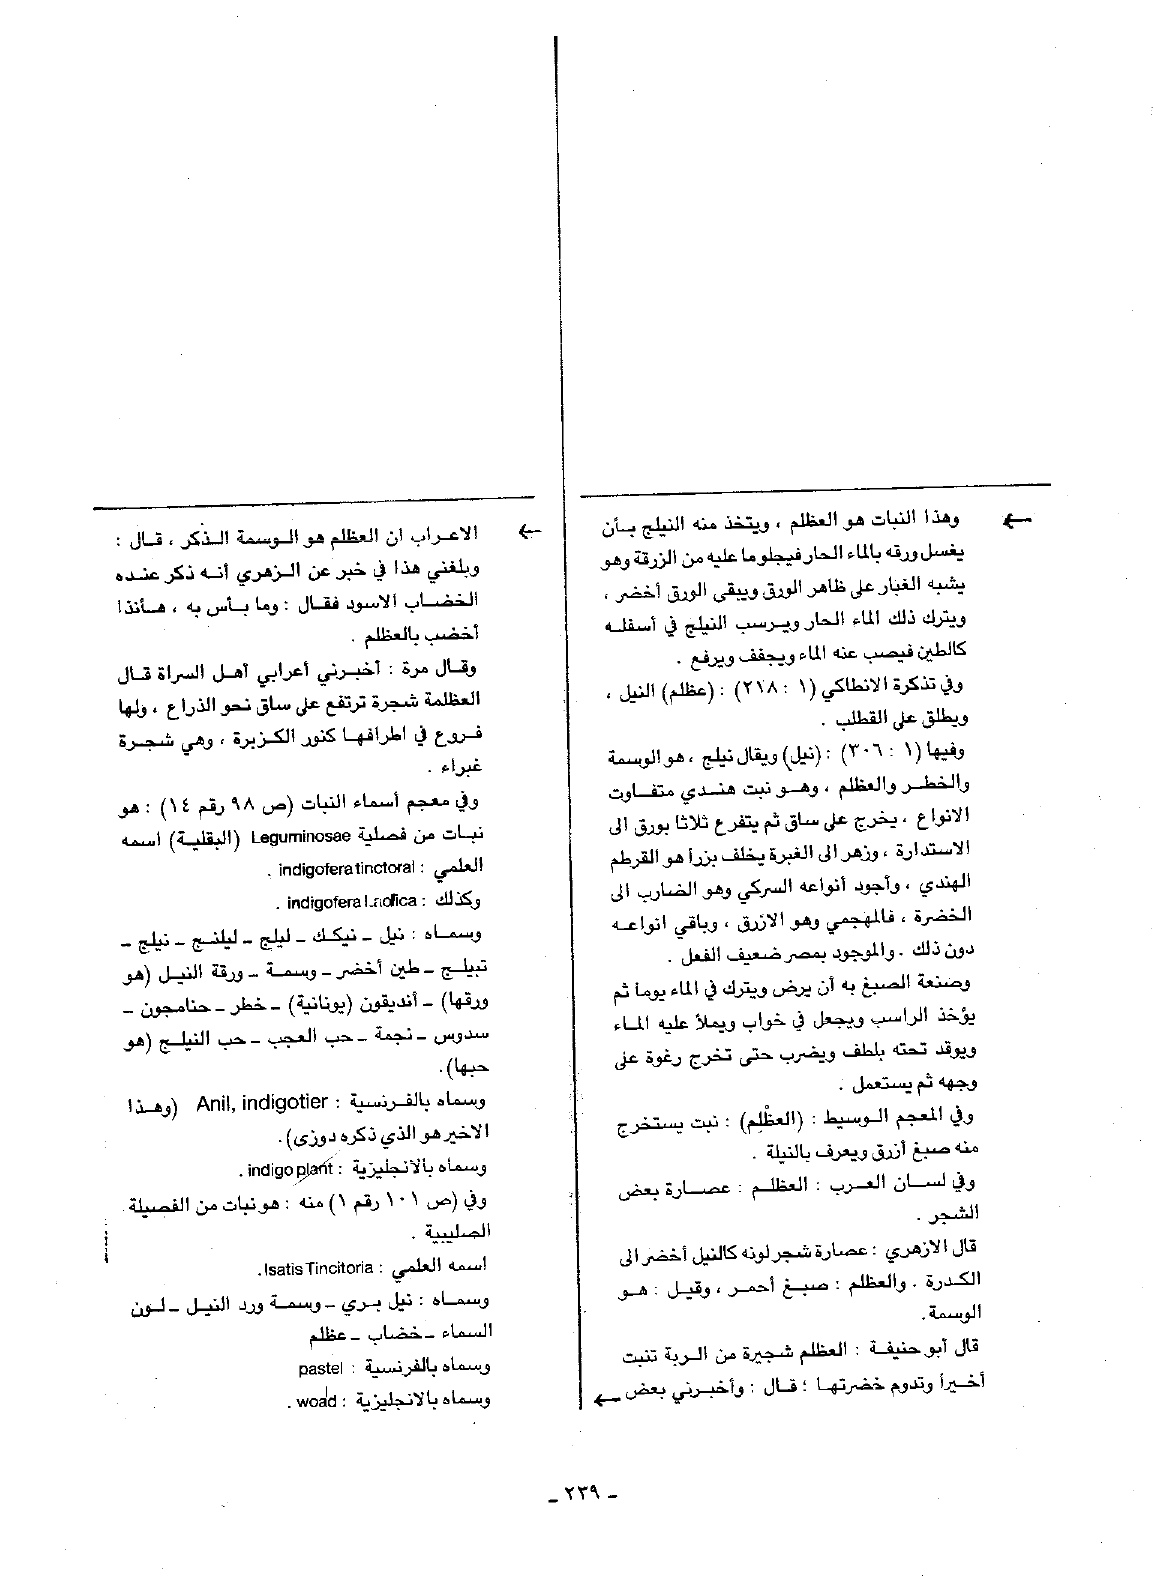 وهذا النبات هو العظلم ، ويتخذ منه النيلج بـأن
يغسل ورقه بالماء الحار فيجلو ما عليه من الزرقة وهو
يشبه الغبار على ظاهر الورق ويبقى الورق أخضر ،
ويترك ذلك الماء الحار ويـرسب النيلج في أسفلـه
كالطين فيصب عنه الماء ويجفف ويرفع .
وفي تذكرة الانطاكي (١ : ٢١٨) : (عظلم) النيل ،
ويطلق على القطلب .
وفيها (١ : ٣٠٦) : (نيل) ويقال نيلج ، هو الوسمة
والخطـر والعظلم ، وهـو نبت هنـدي متفـاوت
الانواع ، يخرج على ساق ثم يتفرع ثلاثا بورق الى
الاستدارة ، وزهر الى الغبرة يخلف بزرأ هو القرطم
الهندي ، وأجود أنواعه السركي وهو الضارب الى
الخضرة ، فالمهجمي وهو الازرق ، وباقي انواعـه
دون ذلك . والموجود بمصر ضعيف الفعل .
وصنعة الصبغ به أن يرض ويترك في الماء يوما ثم
يؤخذ الراسب ويجعل في خواب ويملأ عليه المـاء
ويوقد تحته بلطف ويضرب حتى تخرج رغوة على
وجهه ثم يستعمل .
وفي المعجم الـوسيط : (العظْلِم) : نبت يستخرج
منه صبغ أزرق ويعرف بالنيلة .
وفي لسـان العـرب : العظلـم : عصـارة بعض
الشجر .
قال الازهري : عصارة شجر لونه كالنيل أخضر الى
الكـدرة . والعظلم : صبـغ أحمـر ، وقيـل : هـو
الوسمة.
قال أبو حنيفـة : العظلم شجيرة من الـربة تنبت
أخـيرأ وتدوم خضرتهـا ؛ قـال : وأخـبرني بعض ←
← الاعـراب ان العظلم هو الـوسمة الـذكر ، قـال :
وبلغني هذا في خبر عن الـزهري أنـه ذكر عنـده
الخضـاب الاسود فقـال : وما بـأس به ، هـأنذا
أخضب بالعظلم .
وقـال مرة : أخبـرني أعرابي أهـل السراة قـال
العظلمة شجرة ترتفع على ساق نحو الذراع ، ولها
فـروع في اطرافهـا كنور الكـزبرة ، وهي شجـرة
غبراء .
وفي معجم أسماء النبات (ص ٩٨ رقم ١٤) : هو
نبـات من فصلية Leguminosae (البقليـة) اسمه
العلمي : indigofera tinctoral .
وكذلك : indigofera .
وسمـاه : نيل ـ نيكـك ـ ليلج ـ ليلنـج ـ نيلج ـ
تبيلـج ـ طين أخضـر ـ وسمـة ـ ورقة النيـل (هو
ورقها) ـ أنديقون (يونانية) ـ خطر ـ حنامجون ـ
سدوس ـ نجمة ـ حب العجب ـ حب النيلـج (هو
حبها).
وسماه بالفـرنسية : Anil, indigotier (وهـذا
الاخير هو الذي ذكره دوزى).
وسماه بالانجليزية : indigo plant .
وفي (ص ١٠١ رقم ١) منه : هو نبات من الفصيلة
الصليبية .
اسمه العلمي : Isatis Tincitoria.
وسمـاه : نيل بـري ـ وسمـة ورد النيـل ـ لـون
السماء ـ خضاب ـ عظلم
وسماه بالفرنسية : pastel
وسماه بالانجليزية : woad .
ـ ٢٣٩ ـ